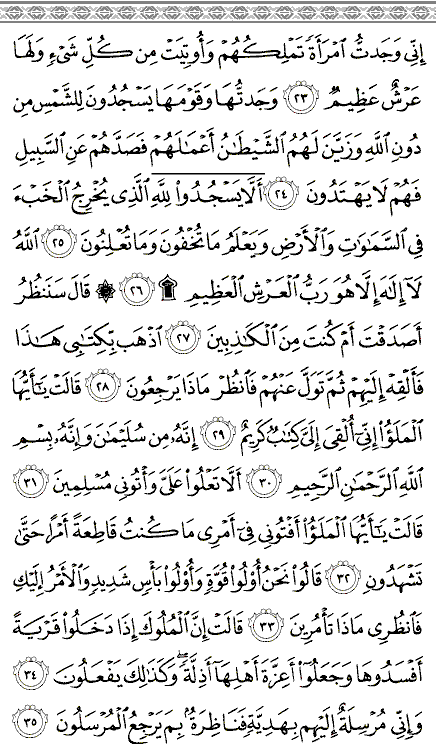 إِنِّى وَجَدتُّ ٱمْرَأَةً تَمْلِكُهُمْ وَأُوتِيَتْ مِن كُلِّ شَىْءٍ وَلَهَا
عَرْشٌ عَظِيمٌ ٢٣ وَجَدتُّهَا وَقَوْمَهَا يَسْجُدُونَ لِلشَّمْسِ مِن
دُونِ ٱللَّهِ وَزَيَّنَ لَهُمُ ٱلشَّيْطَٰنُ أَعْمَٰلَهُمْ فَصَدَّهُمْ عَنِ ٱلسَّبِيلِ
فَهُمْ لَا يَهْتَدُونَ ٢٤ أَلَّا يَسْجُدُوا۟ لِلَّهِ ٱلَّذِى يُخْرِجُ ٱلْخَبْءَ
فِى ٱلسَّمَٰوَٰتِ وَٱلْأَرْضِ وَيَعْلَمُ مَا تُخْفُونَ وَمَا تُعْلِنُونَ ٢٥ ٱللَّهُ
لَآ إِلَٰهَ إِلَّا هُوَ رَبُّ ٱلْعَرْشِ ٱلْعَظِيمِ ۩ ٢٦ ۞ قَالَ سَنَنظُرُ
أَصَدَقْتَ أَمْ كُنتَ مِنَ ٱلْكَٰذِبِينَ ٢٧ ٱذْهَب بِّكِتَٰبِى هَٰذَا
فَأَلْقِهْ إِلَيْهِمْ ثُمَّ تَوَلَّ عَنْهُمْ فَٱنظُرْ مَاذَا يَرْجِعُونَ ٢٨ قَالَتْ يَٰٓأَيُّهَا
ٱلْمَلَؤُا۟ إِنِّىٓ أُلْقِىَ إِلَىَّ كِتَٰبٌ كَرِيمٌ ٢٩ إِنَّهُۥ مِن سُلَيْمَٰنَ وَإِنَّهُۥ بِسْمِ
ٱللَّهِ ٱلرَّحْمَٰنِ ٱلرَّحِيمِ ٣٠ أَلَّا تَعْلُوا۟ عَلَىَّ وَأْتُونِى مُسْلِمِينَ ٣١
قَالَتْ يَٰٓأَيُّهَا ٱلْمَلَؤُا۟ أَفْتُونِى فِىٓ أَمْرِى مَا كُنتُ قَاطِعَةً أَمْرًا حَتَّىٰ
تَشْهَدُونِ ٣٢ قَالُوا۟ نَحْنُ أُو۟لُوا۟ قُوَّةٍ وَأُو۟لُوا۟ بَأْسٍ شَدِيدٍ وَٱلْأَمْرُ إِلَيْكِ
فَٱنظُرِى مَاذَا تَأْمُرِينَ ٣٣ قَالَتْ إِنَّ ٱلْمُلُوكَ إِذَا دَخَلُوا۟ قَرْيَةً
أَفْسَدُوهَا وَجَعَلُوٓا۟ أَعِزَّةَ أَهْلِهَآ أَذِلَّةً ۖ وَكَذَٰلِكَ يَفْعَلُونَ ٣٤
وَإِنِّى مُرْسِلَةٌ إِلَيْهِم بِهَدِيَّةٍ فَنَاظِرَةٌۢ بِمَ يَرْجِعُ ٱلْمُرْسَلُونَ ٣٥